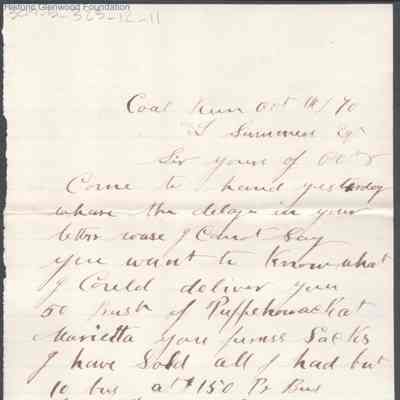 Historic Glenwood Foundation
Coal Run Oct 18/70
L Summers Eqr
Sir yours of Oct 8
Come to hand yesterday
whare the delaye in your
letter wase I Cannot Say
you want to Know what
I Could deliver you
50 Bush of at
Marietta you furnis Sacks
I have Sold all I had but
10 bus at $1.50 Pr Bus